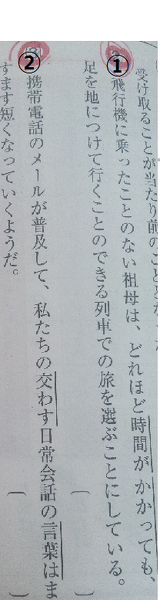 受け取ることが当たり前のこと
① 飛行機に乗ったことのない祖母は、どれほど時間がかかっても、
足を地につけて行くことのできる列車での旅を選ぶことにしている。
② 携帯電話のメールが普及して、私たちの交わす日常会話の言葉はま
すます短くなっていくようだ。